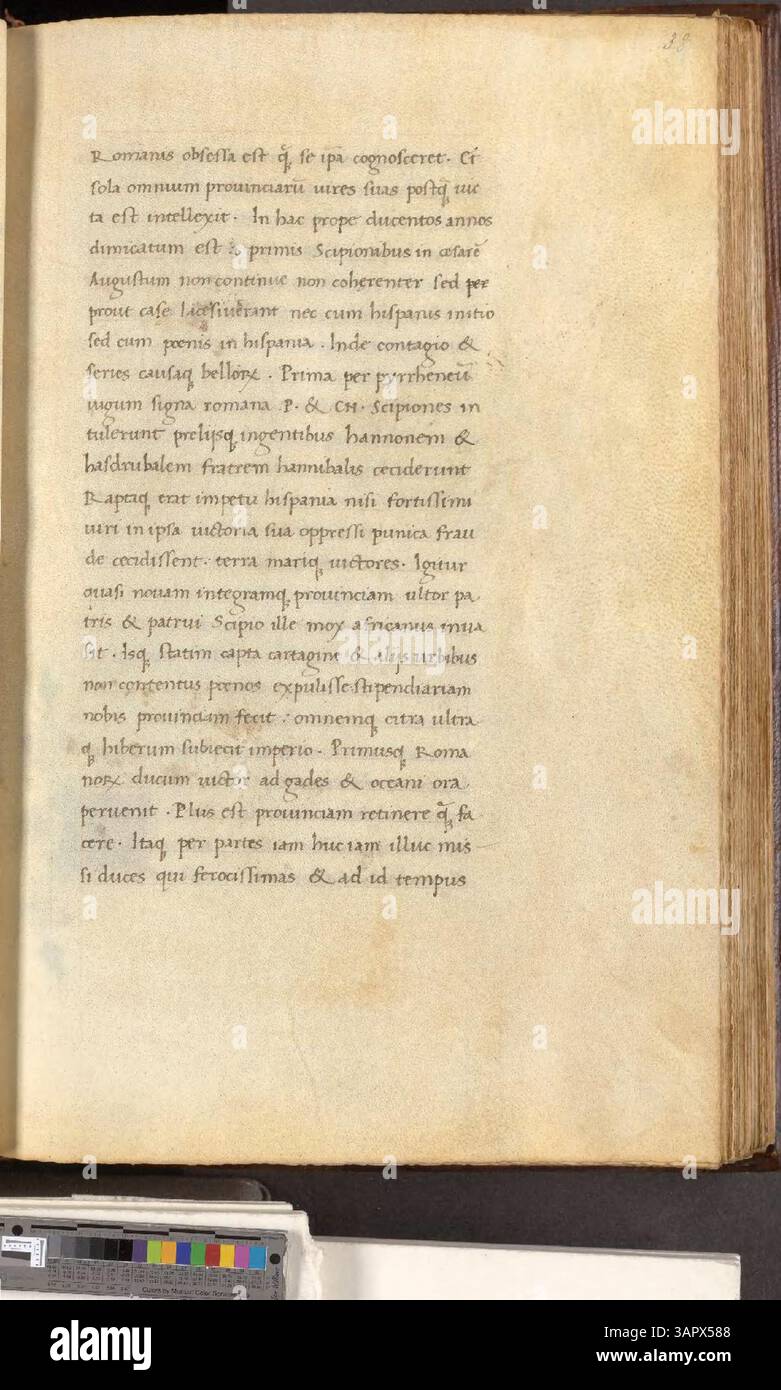 38
Romanis obsessa est q̃ se ip̃a cognosceret. Et
sola omnium prouinciarũ uires suas postq̃ uic
ta est intellexit. In hac prope ducentos annos
dimicatum est a primis Scipionibus in cesarẽ
Augustum non continue non coherenter sed per
prout case licesiuerant nec cum hispanis initio
sed cum poenis in hispania. Inde contagio &
series causaq; belloꝝ. Prima per pyrrheneũ
iugum signa romana P. & CN. Scipiones in
tulerunt prelijsq; ingentibus hannonem &
hasdrubalem fratrem hannibalis ceciderunt
Raptaq; erat impetu hispania nisi fortissimi
uiri in ipsa uictoria sua oppressi punica frau
de cecidissent. terra mariq; uictores. Igitur
quasi nouam integramq; prouinciam ultor pa
tris & patrui Scipio ille mox africanus inua
sit. Isq; statim capta cartagine & alijs urbibus
non contentus poenos expulisse stipendiariam
nobis prouinciam fecit: omnemq; citra ultra
q; hiberum subiecit imperio. Primusq; Roma
noꝝ ducum uictor ad gades & oceani ora
peruenit. Plus est prouinciam retinere q̃ fa
cere. Itaq; per partes iam huc iam illuc mis
si duces qui ferocissimas & ad id tempus
alamy
Image ID: 3APX588
www.alamy.com